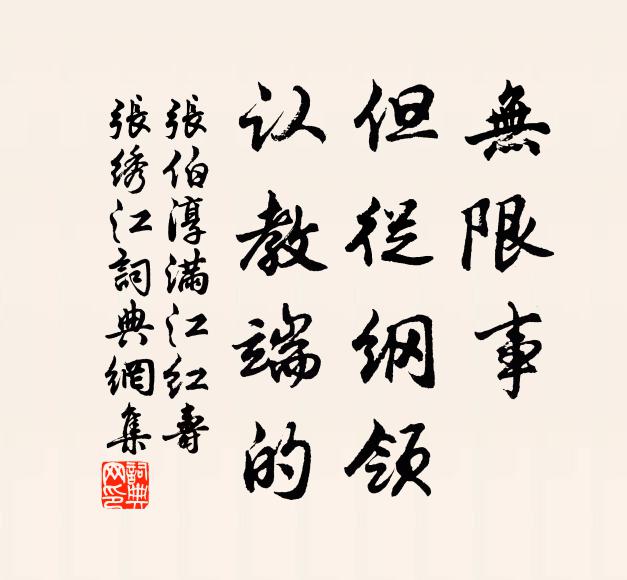 無限事
但從綱領
认教端的
張伯淳满江红壽
張绣江詞典網集
詞典网印